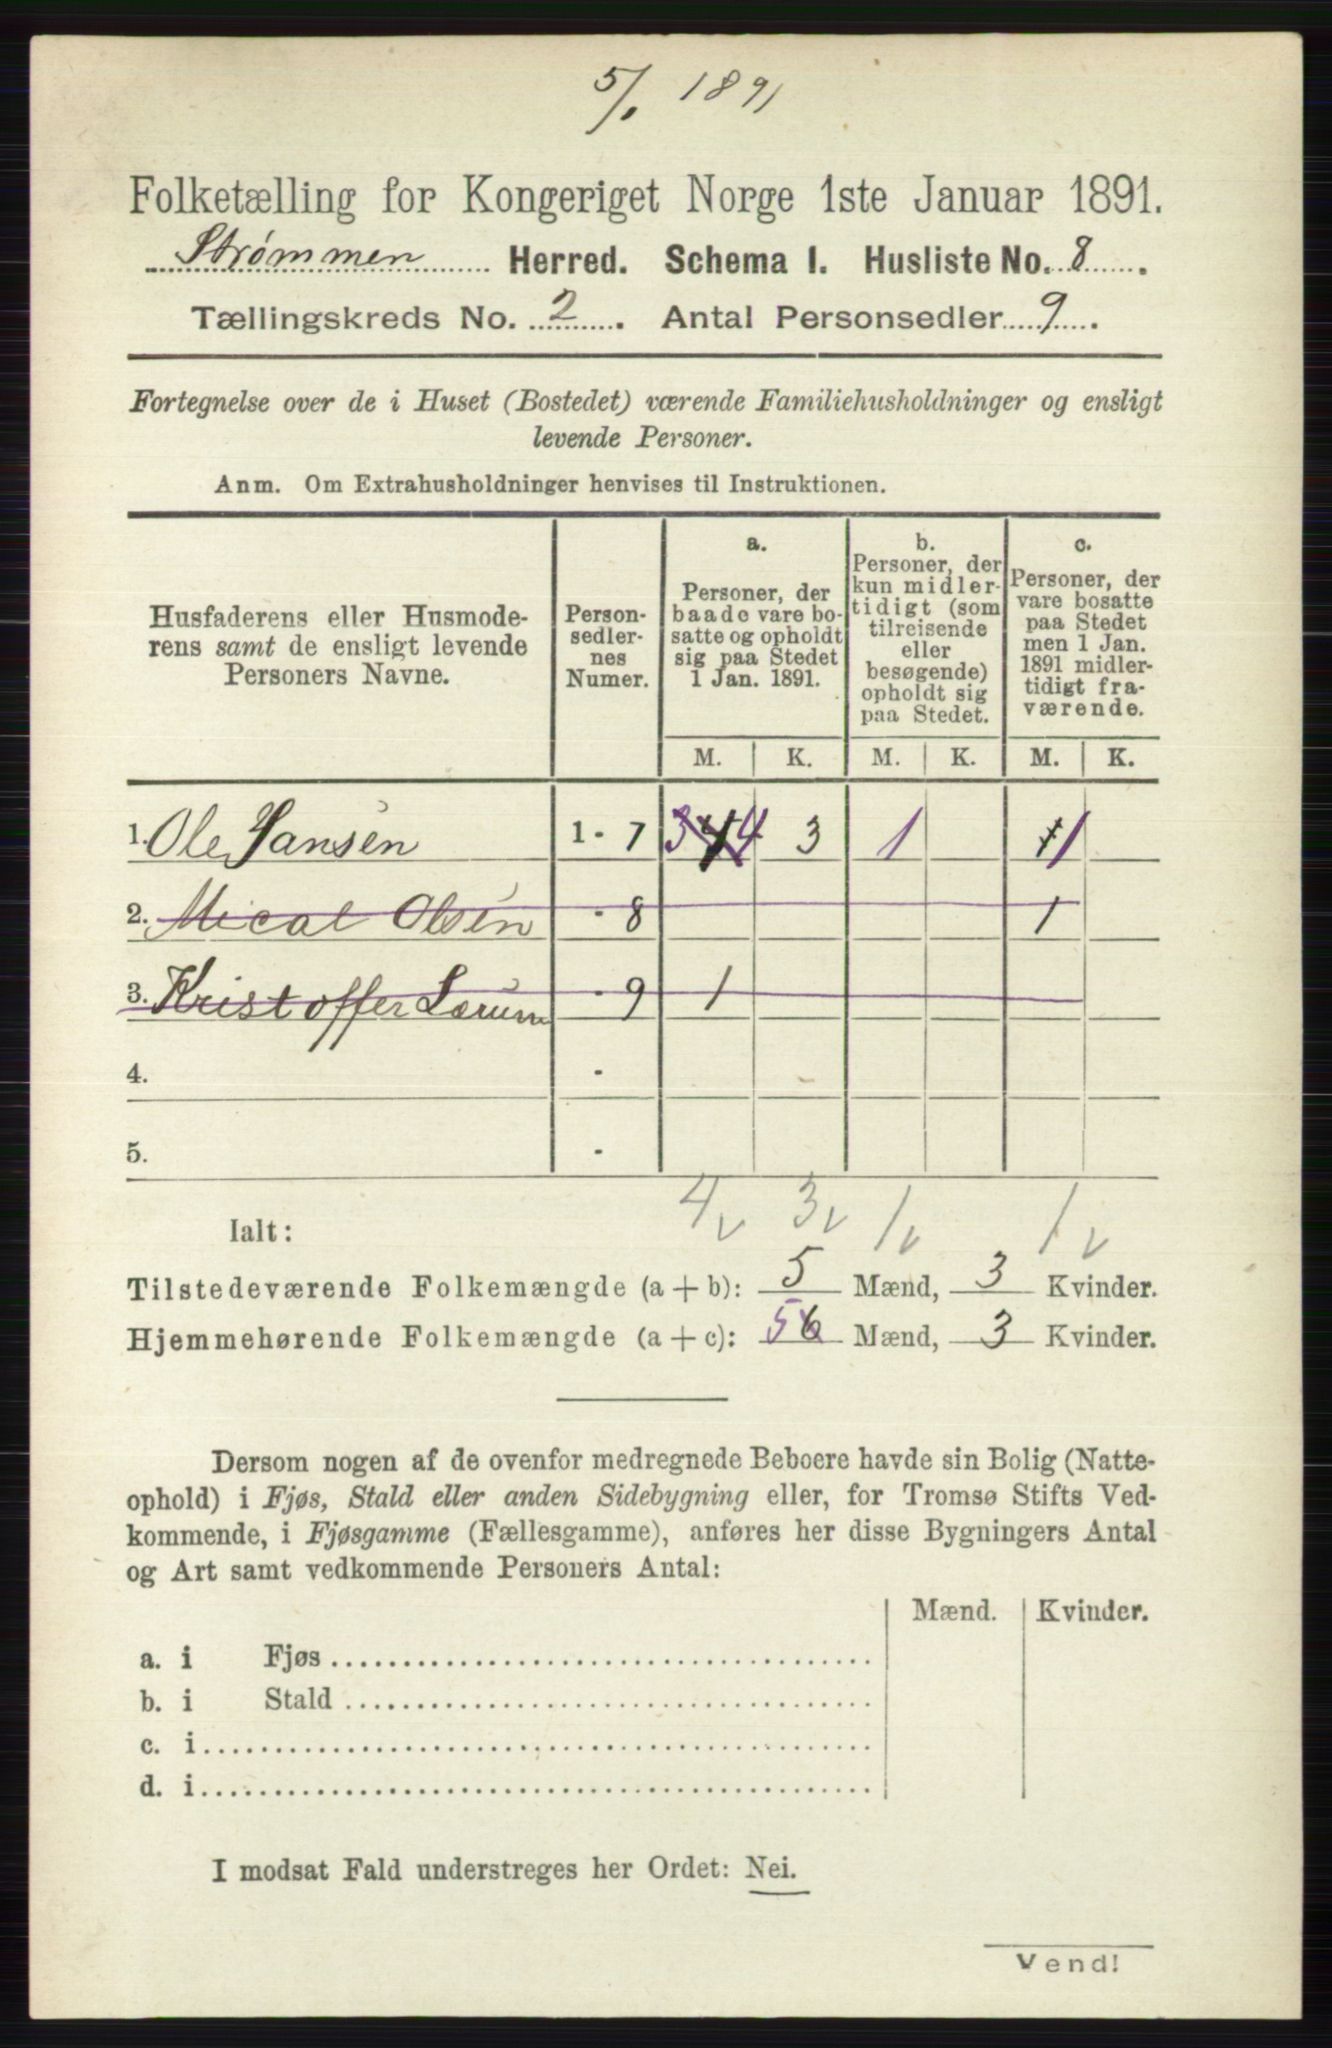 5/1 1891
Folketælling for Kongeriget Norge 1ste Januar 1891.
Strømmen Herred. Schema I. Husliste No. 8.
Tællingskreds No. 2. Antal Personsedler 9.
Fortegnelse over de i Huset (Bostedet) værende Familiehusholdninger og ensligt
levende Personer.
Anm. Om Extrahusholdninger henvises til Instruktionen.
Husfaderens eller Husmode-
rens samt de ensligt levende
Personers Navne.
Person-
sedler-
nes
Numer.
a.
Personer, der
baade vare bo-
satte og opholdt
sig paa Stedet
1 Jan. 1891.
b.
Personer, der
kun midler-
tidigt (som
tilreisende
eller
besøgende)
opholdt sig
paa Stedet.
c.
Personer, der
vare bosatte
paa Stedet
men 1 Jan.
1891 midler-
tidigt fra-
værende.
M. K. M. K. M. K.
1. Ole Hansen 1 - 7 4 3 1 1
2. Mical Olsen - 8 1
3. Kristoffer Lærum - 9 1
4. -
5. -
Ialt: 4 v 3 v 1 v 1 v
Tilstedeværende Folkemængde (a + b): 5 Mænd, 3 Kvinder.
Hjemmehørende Folkemængde (a + c): 5 6 Mænd, 3 Kvinder.
Dersom nogen af de ovenfor medregnede Beboere havde sin Bolig (Natte-
ophold) i Fjøs, Stald eller anden Sidebygning eller, for Tromsø Stifts Ved-
kommende, i Fjøsgamme (Fællesgamme), anføres her disse Bygningers Antal
og Art samt vedkommende Personers Antal:
Mænd. Kvinder.
a. i Fjøs
b. i Stald
c. i
d. i
I modsat Fald understreges her Ordet: Nei.
Vend!